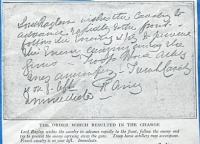 Lord Raglan wishes the Cavalry to
advance rapidly to the front –
follow the Enemy & try to prevent
the Enemy carrying away the
guns – Troop Horse Arty
may accompany – French Cavalry
is on yr left
Immediate R Airey
THE ORDER WHICH RESULTED IN THE CHARGE
Lord Raglan wishes the cavalry to advance rapidly to the front, follow the enemy and
try to prevent the enemy carrying away the guns. Troop horse artillery may accompany.
French cavalry is on your left. Immediate.